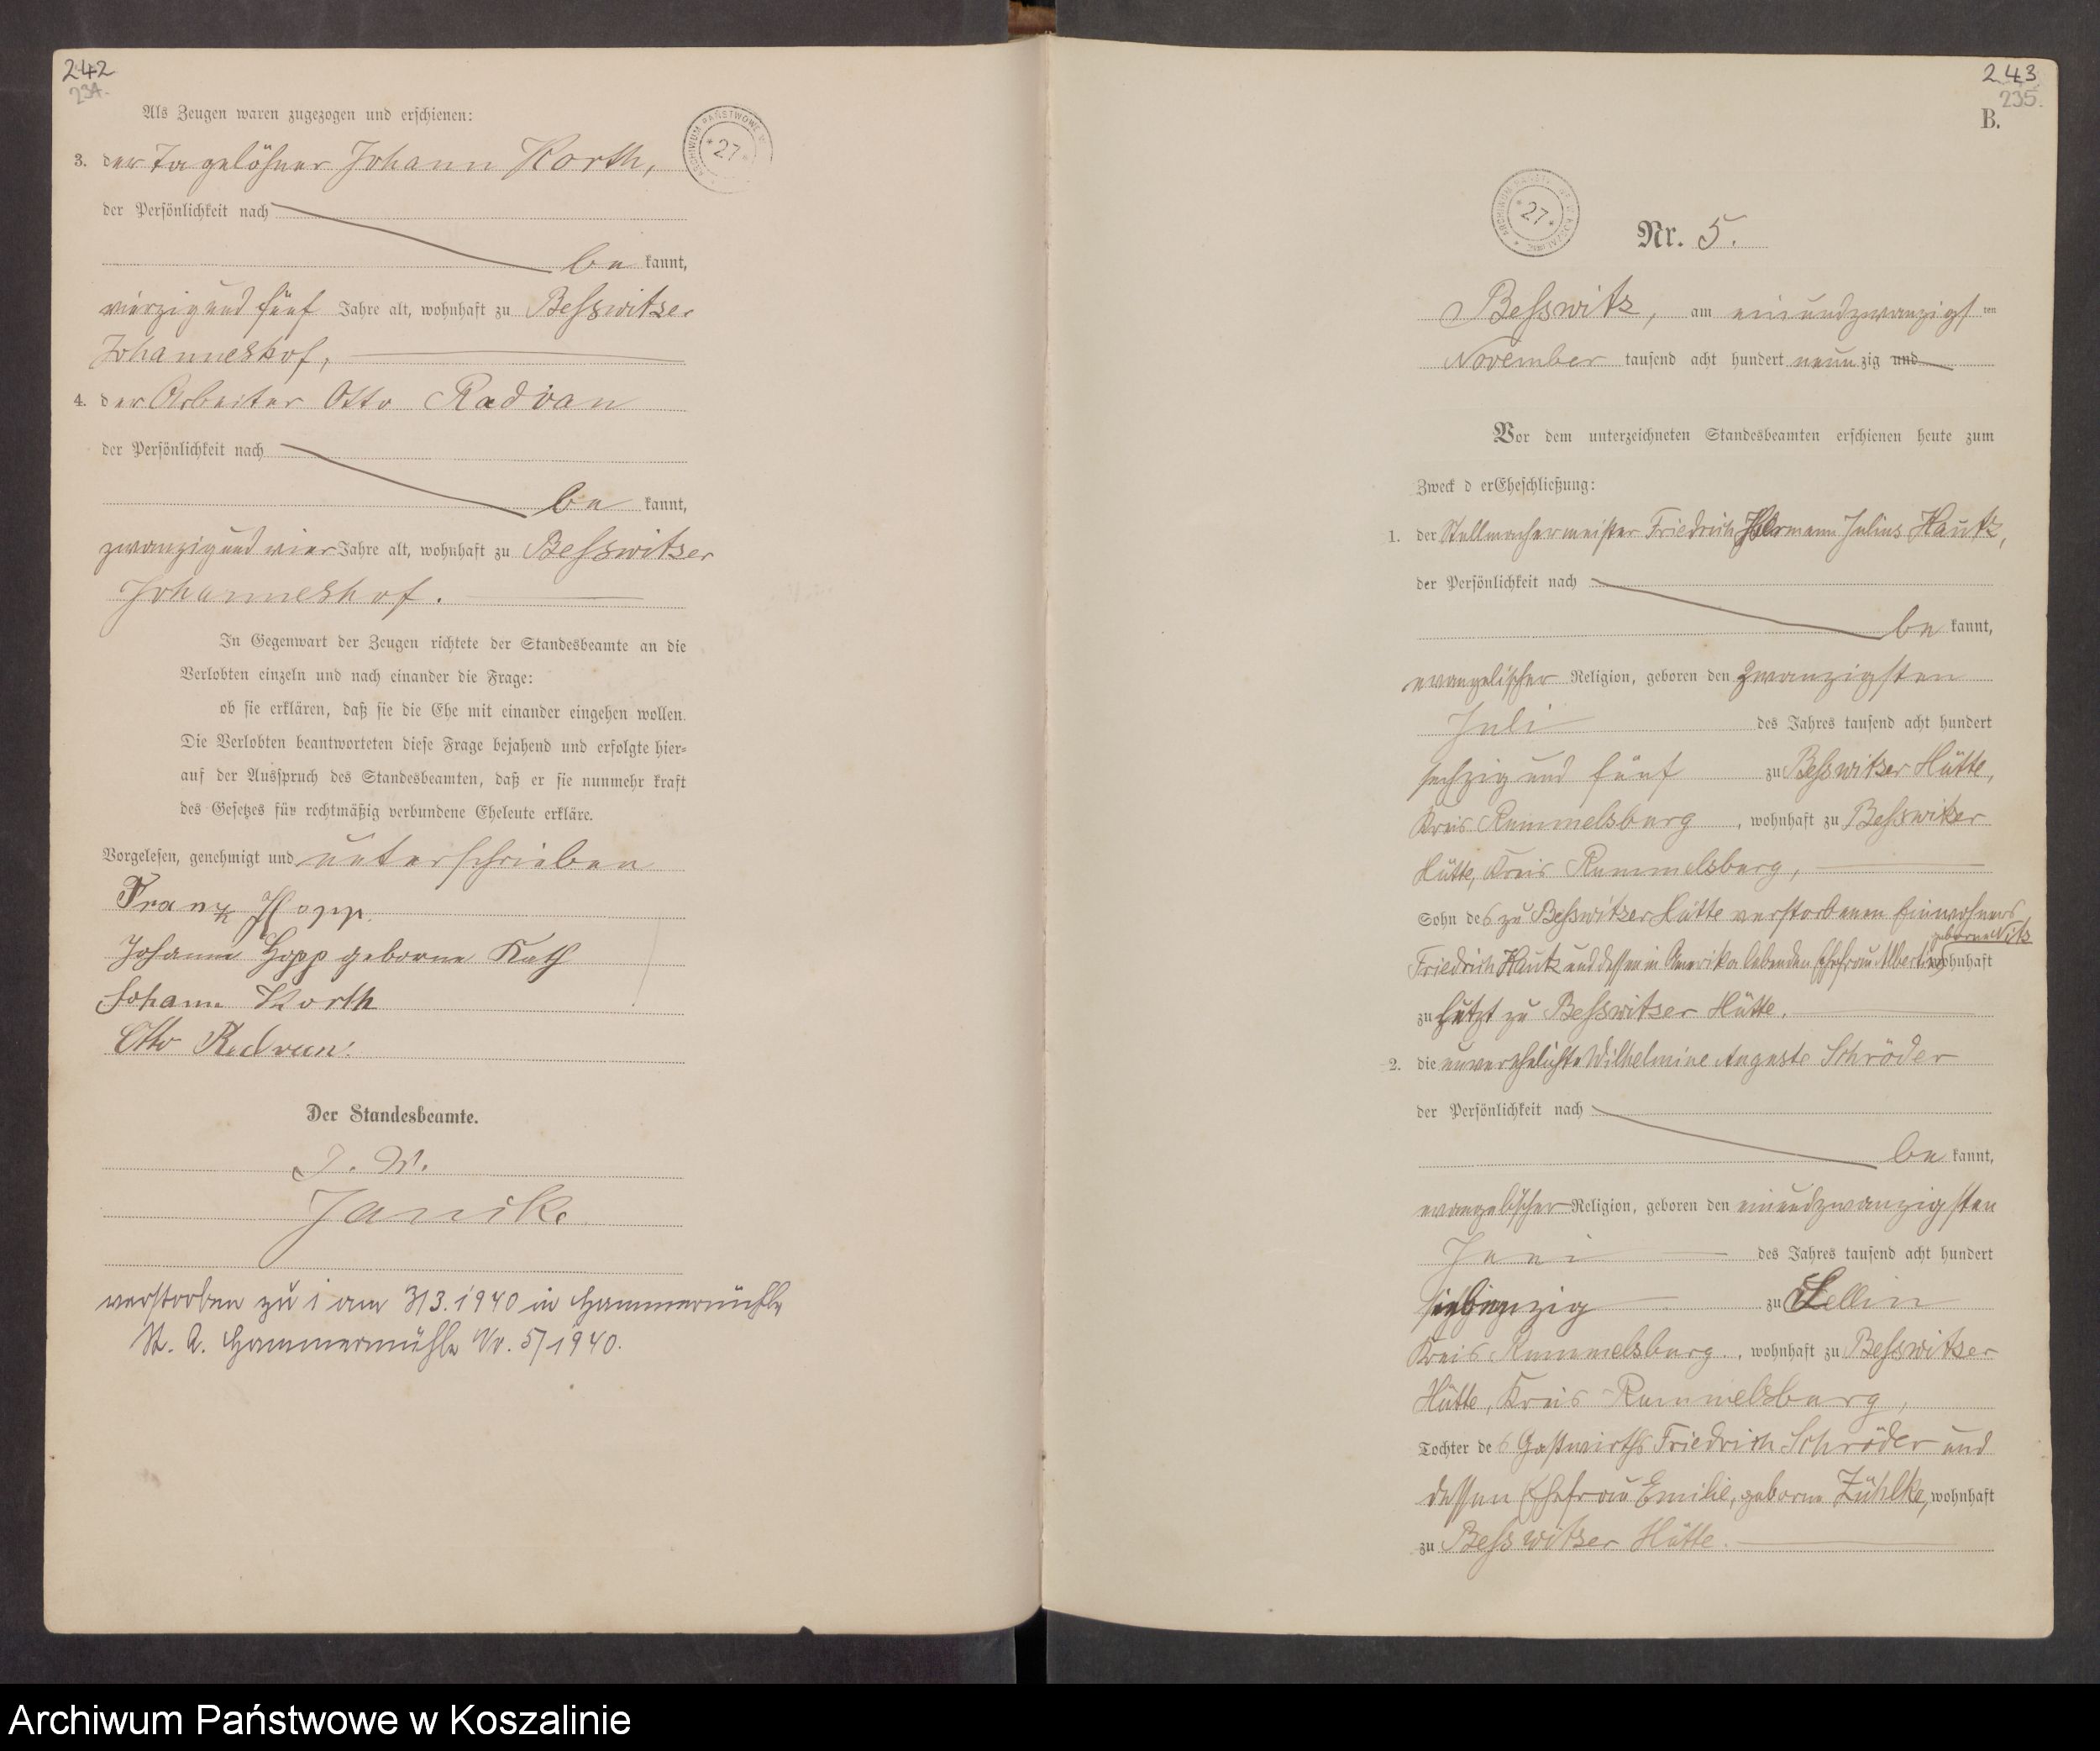 242
234.
Als Zeugen waren zugezogen und erschienen:
3. der Tagelöhner Johann Korth,
der Persönlichkeit nach
be kannt,
vierzig und fünf Jahre alt, wohnhaft zu Besswitzer
Johanneshof,
4. der Arbeiter Otto Radvan
der Persönlichkeit nach
be kannt,
zwanzig und vier Jahre alt, wohnhaft zu Besswitzer
Johanneshof.
In Gegenwart der Zeugen richtete der Standesbeamte an die
Verlobten einzeln und nach einander die Frage:
ob sie erklären, daß sie die Ehe mit einander eingehen wollen.
Die Verlobten beantworteten diese Frage bejahend und erfolgte hier-
auf der Ausspruch des Standesbeamten, daß er sie nunmehr kraft
des Gesetzes für rechtmäßig verbundene Eheleute erkläre.
Vorgelesen, genehmigt und unterschrieben
Franz Hopp.
Johanna Hopp geborne Kath
Johann Korth
Otto Radvan.
Der Standesbeamte.
J. V.
Janike
verstorben zu 1 am 3/3.1940 in Hammermühle
St. A. Hammermühle Nr. 5/1940.
ARCHIWUM PAŃSTWOWE W
* 27 *
243
235.
B.
ARCHIWUM PAŃSTWOWE W KOSZALINIE
* 27 *
Nr. 5.
Besswitz, am einundzwanzigst ten
November tausend acht hundert neunzig und
Vor dem unterzeichneten Standesbeamten erschienen heute zum
Zweck d erEheschließung:
1. der Stellmachermeister Friedrich Hermann Julius Hautz,
der Persönlichkeit nach
be kannt,
evangelischer Religion, geboren den zwanzigsten
Juli des Jahres tausend acht hundert
sechzig und fünf zu Besswitzer Hütte,
Kreis Rummelsburg, wohnhaft zu Besswitzer
Hütte, Kreis Rummelsburg,
Sohn des zu Besswitzer Hütte verstorbenen Einwohners
geborne Nitz
Friedrich Hautz und dessen in Amerika lebenden Ehefrau Albertine wohnhaft
zu zuletzt zu Besswitzer Hütte.
2. die unverehelichte Wilhelmine Auguste Schröder
der Persönlichkeit nach
be kannt,
evangelischer Religion, geboren den einundzwanzigsten
Juni des Jahres tausend acht hundert
siebenzig zu Sellin
Kreis Rummelsburg, wohnhaft zu Besswitzer
Hütte, Kreis Rummelsburg,
Tochter des Gastwirths Friedrich Schröder und
dessen Ehefrau Emilie, geborne Zühlke, wohnhaft
zu Besswitzer Hütte.
Archiwum Państwowe w Koszalinie